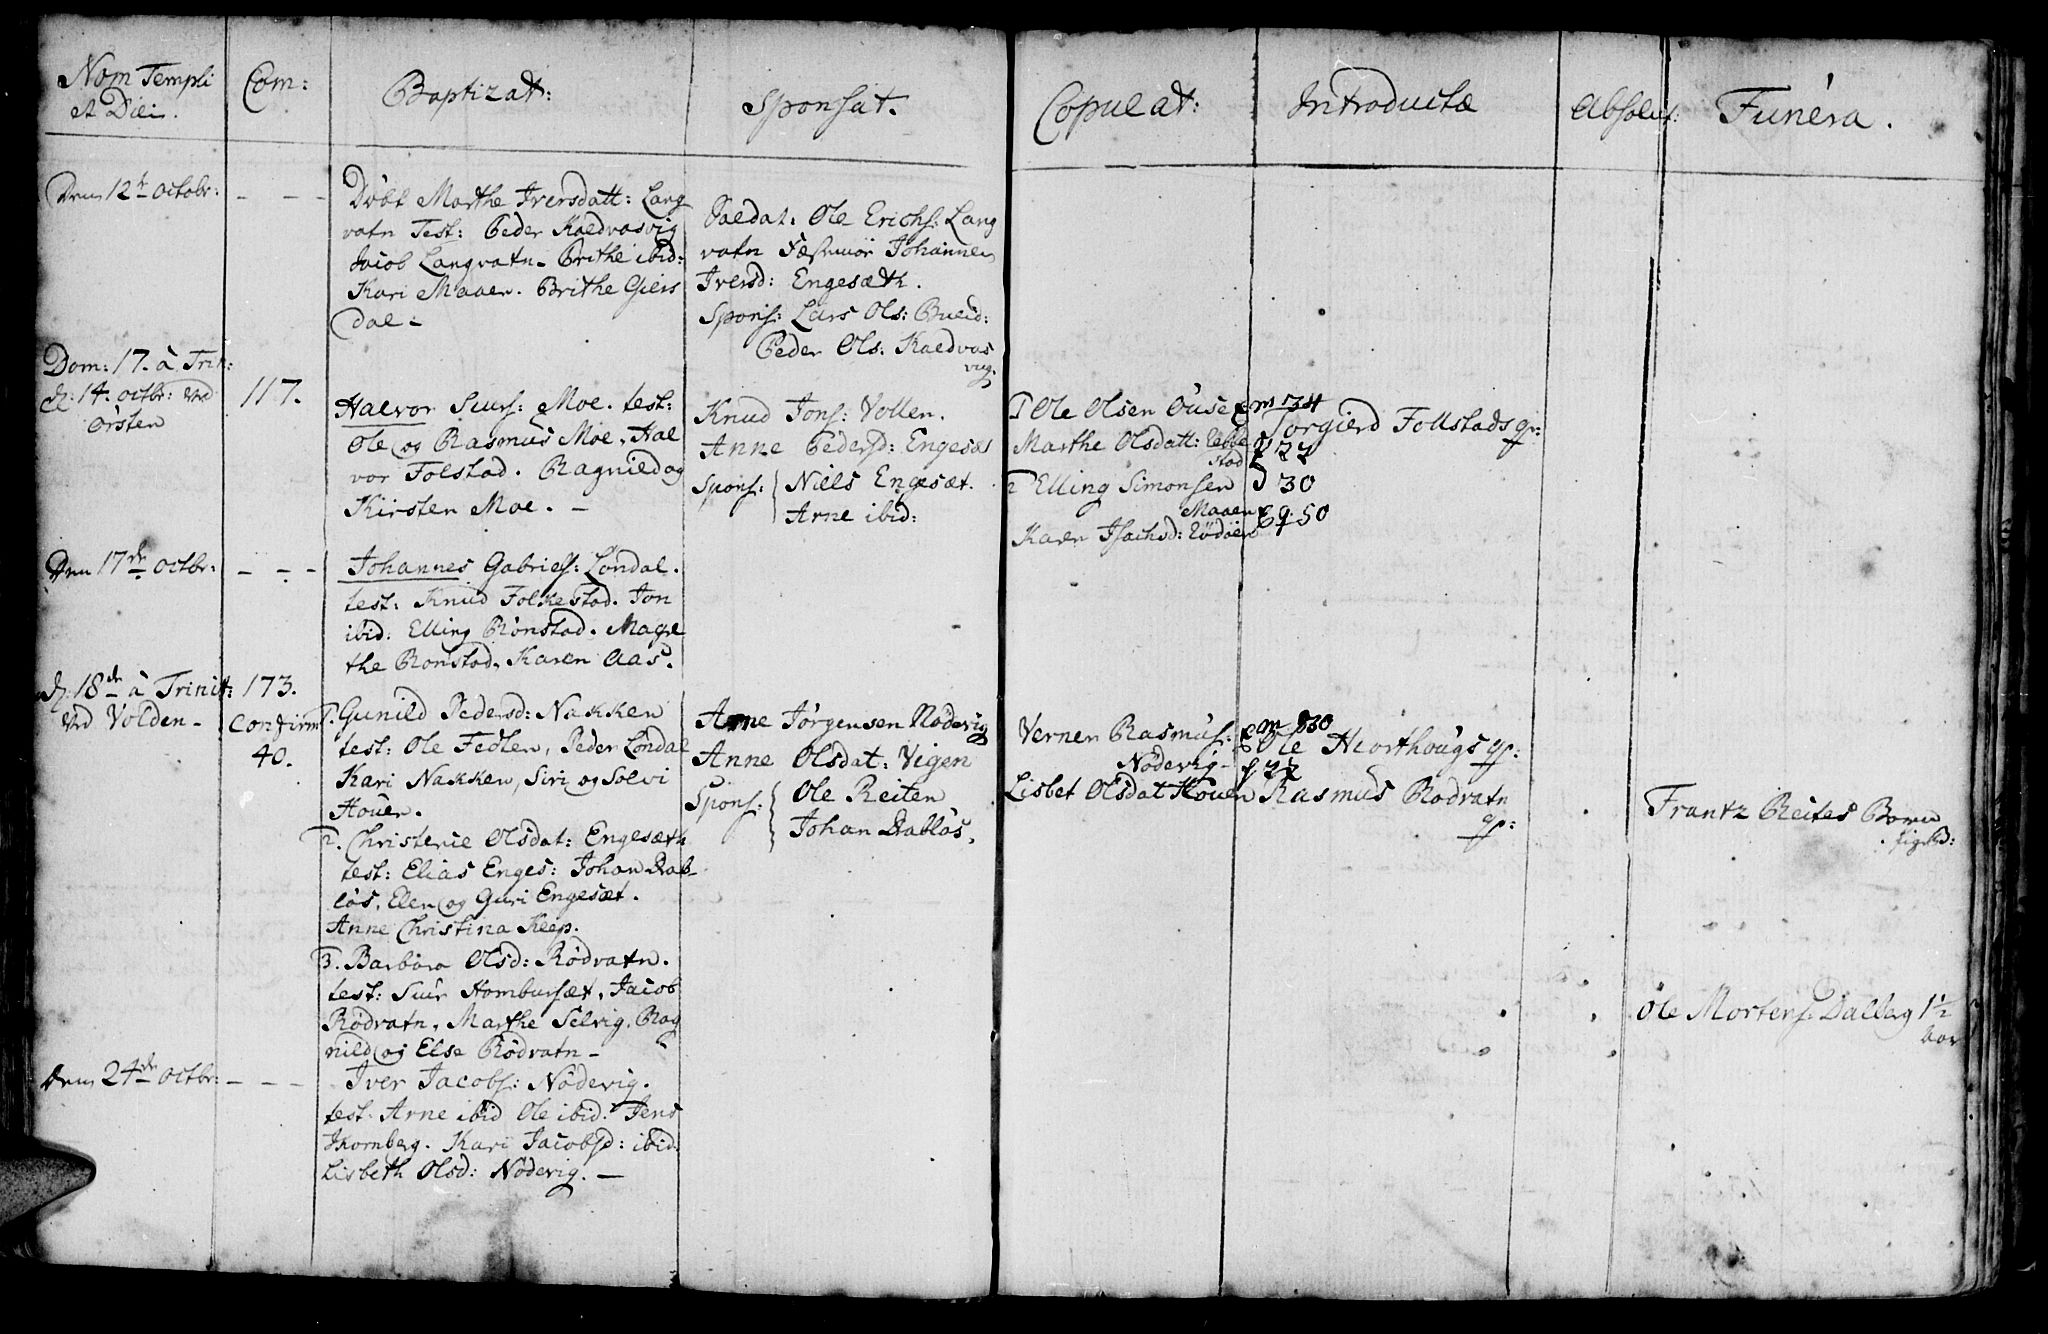 Nom Templi
et Diei.
Com:
Baptizat:
Sponsat.
Copulat:
Introductæ
Absolut:
Funera.
Den 12te octobr:
- - -
Döbt Marthe Iversdatt: Lang
vatn Test: Peder Kaldvasvig
Jacob Langvatn. Brithe ibid:
Kari Maaen. Brithe Giers
dal.
Saldat: Ole Erichs: Lang
vatn Johanne
Iversd: Engesæth.
Spons: Lars Ols: Bueid:
Peder Ols: Kaldvas
vig.
Dom: 17. à Trin:
d: 14. octbr: ved
Örsten
117.
Halvor Siurs: Moe. test:
Ole og Rasmus Moe, Hal
vor Folstad. Ragnild og
Kirsten Moe. -
Knud Jons: Vollen.
Anne Pedersd: Engesæt
Spons: Niels Engesæt.
Arne ibid:
1 Ole Olsen Ouse m 34
Marthe Olsdatt: Ebbe
stad 22
2 Elling Simonsen 30
Maaen
Karen Isachsd: Rödöen 50
Torgierd Follstads qv:
Den 17de octbr:
- - -
Johannes Gabriels: Löndal.
test: Knud Folkestad. Jon
ibid: Elling Rönstad. Magre
the Rönstad, Karen Aas.
d: 18de à Trinit:
ved Volden -
173.
Confirm:
40.
1. Gunild Pedersd: Nakken
test: Ole Fedlen, Peder Löndal
Kari Nakken, Siri og Solvi
Houen.
2. Christence Olsdat: Engesæth
test: Elias Enges: Johan Rab-
lös, Elen og Guri Engesæt.
Anne Christina Keep.
3. Barbara Olsd: Rödvatn.
test: Siur Hombursæt, Jacob
Rödvatn, Marthe Selvig, Rag
nild og Else Rödvatn -
Arne Jörgensen Nödevig
Anne Olsdat: Vigen
Spons: Ole Reiten
Johan Rablös.
Verner Rasmus: m 30
Nödevig - 22
Lisbet Olsdat Houen
Ole Hiorthougs qv:
Rasmus Rödvatn
qv:
Frantz Reites Barn
Ole Mortens: Dalleg 1½
Aar
Den 24de octbr:
- - -
Iver Jacobs: Nödevig.
test. Arne ibid Ole ibid. Jens
Skornberg. Kari Jacobsd: ibid:
Lisbeth Olsd: Nödevig. -